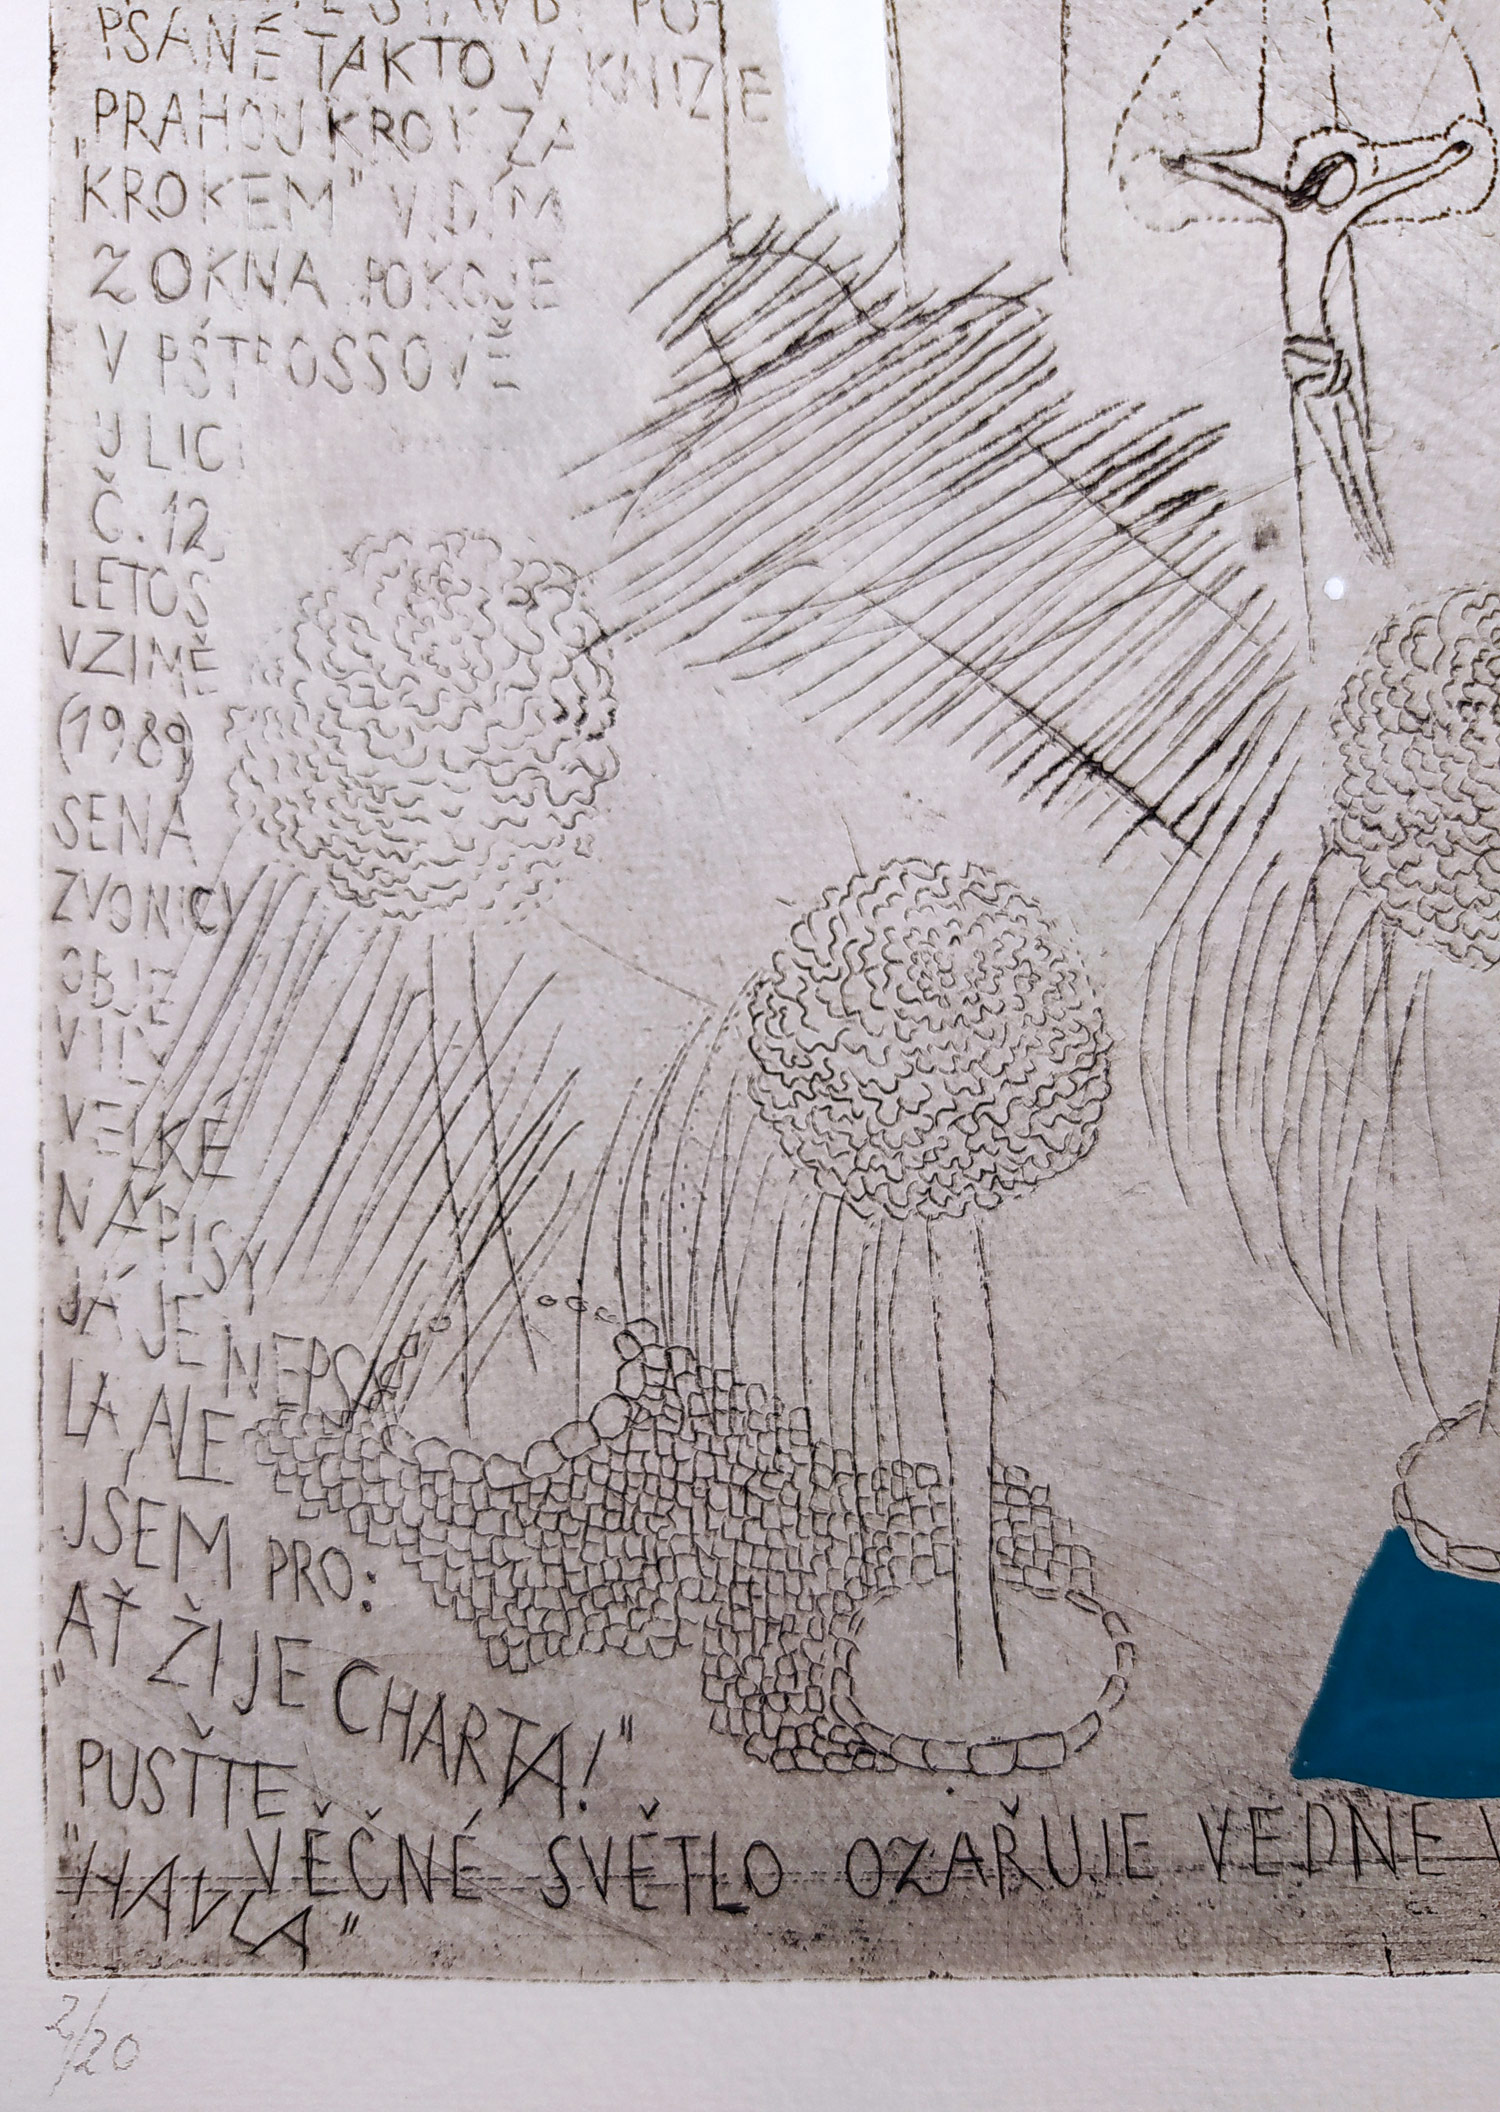 PSÁNÉ TAKTO V KNIZE
„PRAHOU KROK ZA
KROKEM" VIDÍM
Z OKNA POKOJE
V PŠTROSSOVĚ
ULICI
Č. 12
LETOS
V ZIMĚ
(1989)
SE NA
ZVONICI
OBJE
VILY
VELKÉ
NÁPISY
JÁ JE NEPSA
LA, ALE
JSEM PRO:
"AŤ ŽIJE CHARTA!"
PUSŤTE
"HAVLA"
VĚČNÉ SVĚTLO OZAŘUJE VE DNE V
2/20